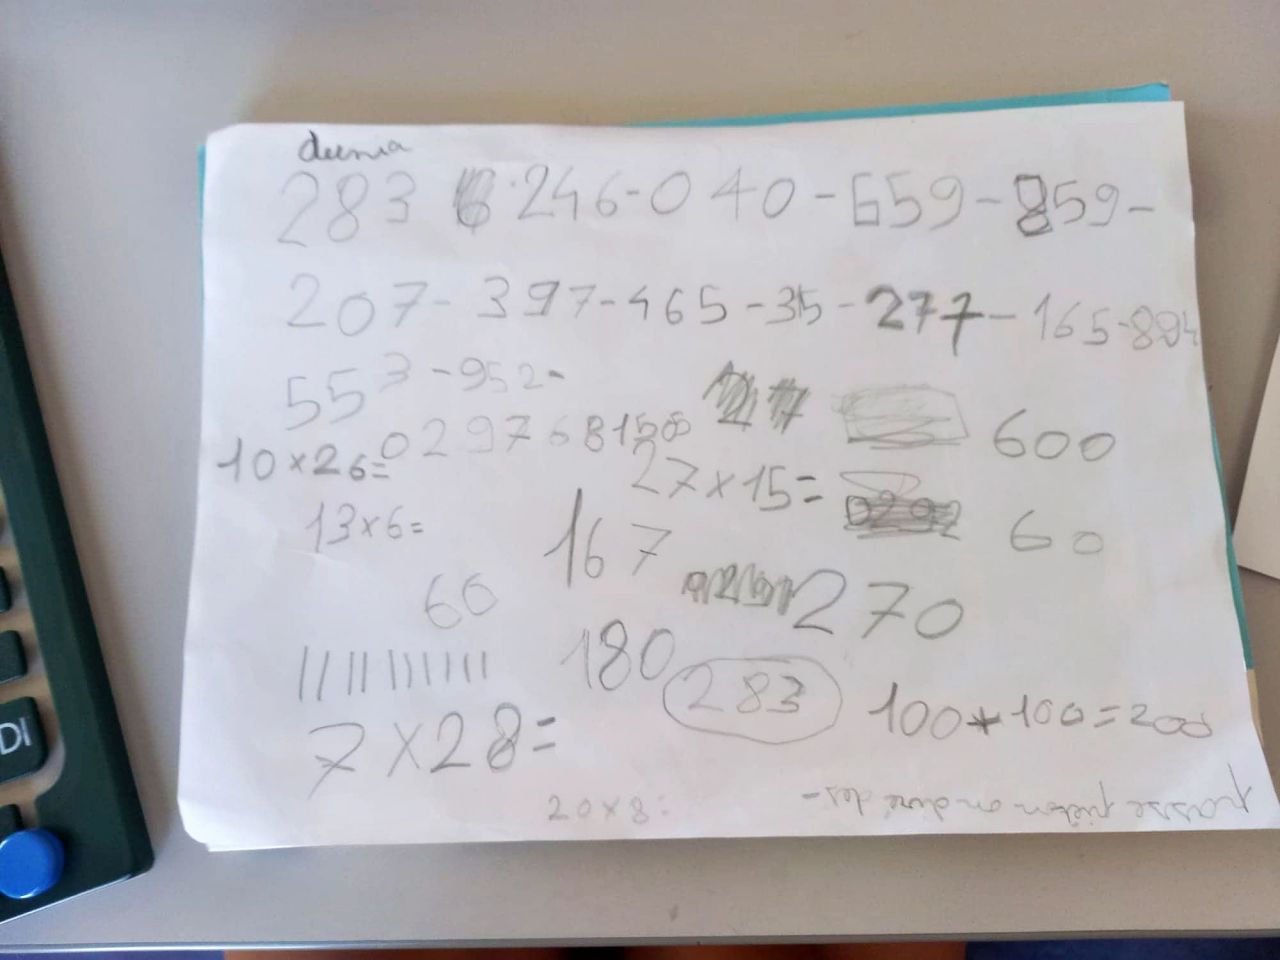 283 246-040-659-859-
207-397-465-35-277-165-894
553-952-
0297681508
600
10×26=
27×15=
13×6=
167
60
60
270
180
283
100+100=200
7×28=
20×8=
DI